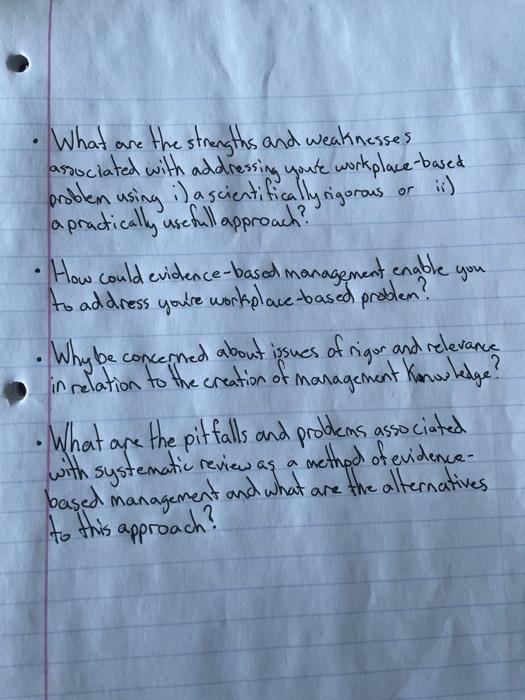 • What are the strengths and weaknesses
associated with addressing you're workplace-based
problem using i) a scientifically rigorous or ii)
a practically usefull approach?
• How could evidence-based management enable you
to address you're workplace-based problem?
• Why be concerned about issues of rigor and relevance
in relation to the creation of management knowledge?
• What are the pitfalls and problems associated
with systematic review as a method of evidence-
based management and what are the alternatives
to this approach?